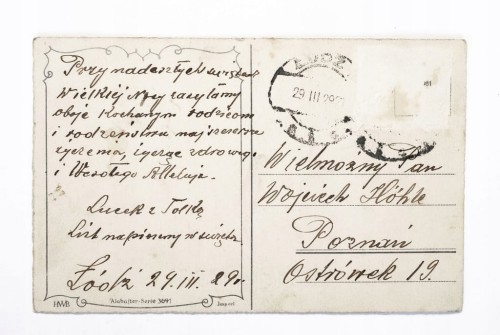 Przy nadeszłych świętach
Wielkiej Nocy zasyłamy
oboje Kochanym rodzicom
i rodzeństwu najszczersze
życzenia, i życzę zdrowego
i Wesołego Alleluja.
Lucek z Tolką
List napiszemy w święta.
Łódź 29. III. 29r.
HWB
Alabaster-Serie 3691
Import
ŁÓDŹ
29 III 29
Wielmożny Pan
Wojciech Höhle
Poznań
Ostrówek 19.